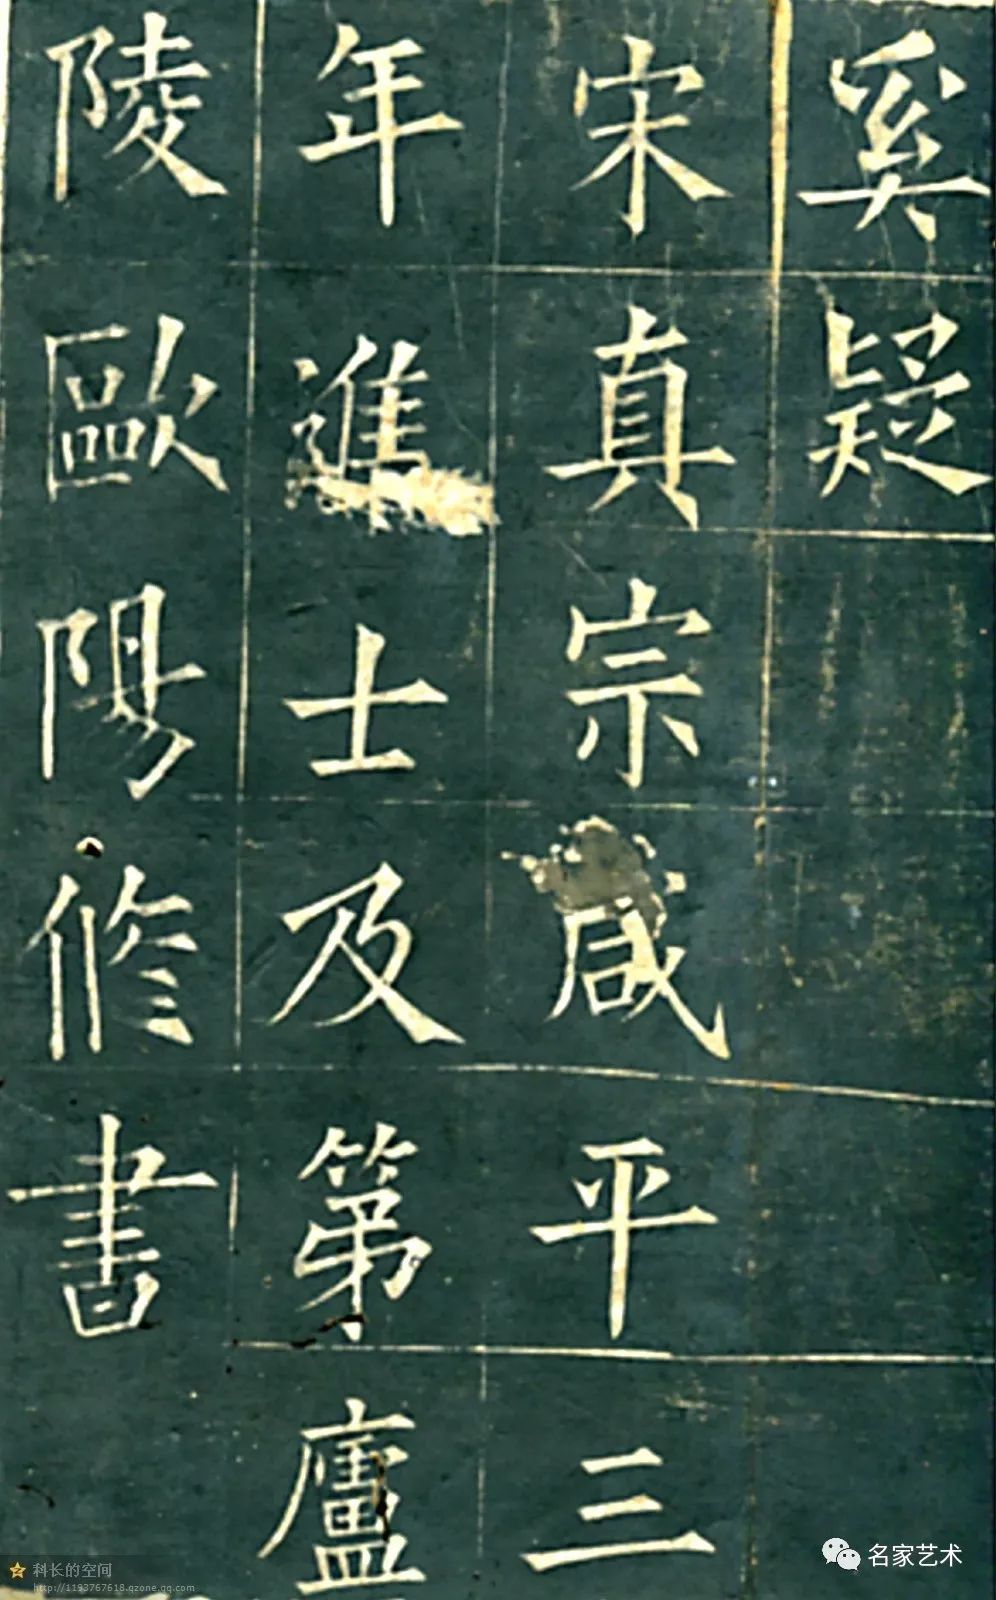 奚疑
宋真宗咸平三
年進士及第廬
陵歐陽脩書
科长的空间
http://1193767618.qzone.qq.com
名家艺术